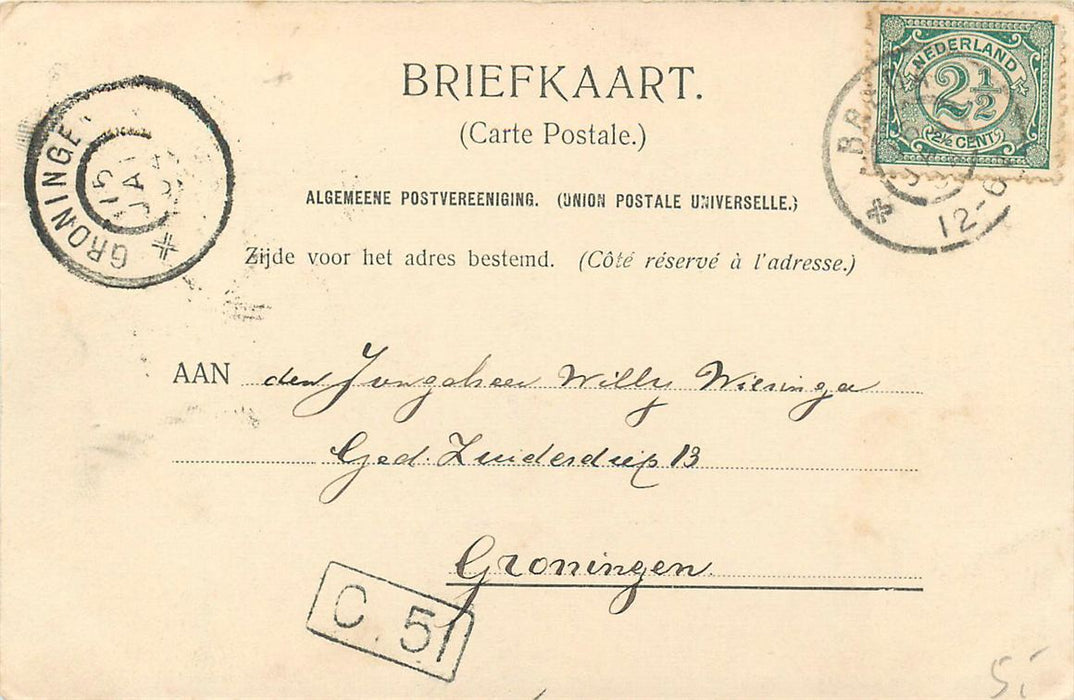 BRIEFKAART.
(Carte Postale.)
ALGEMEENE POSTVEREENIGING. (UNION POSTALE UNIVERSELLE.)
Zijde voor het adres bestemd. (Côté réservé à l'adresse.)
NEDERLAND
2½
2½ CENT
12-6
GRONINGE
15 JA
AAN den Jongeheer Willy Wieringa
Ged. Zuiderdiep 13
Groningen
C. 51